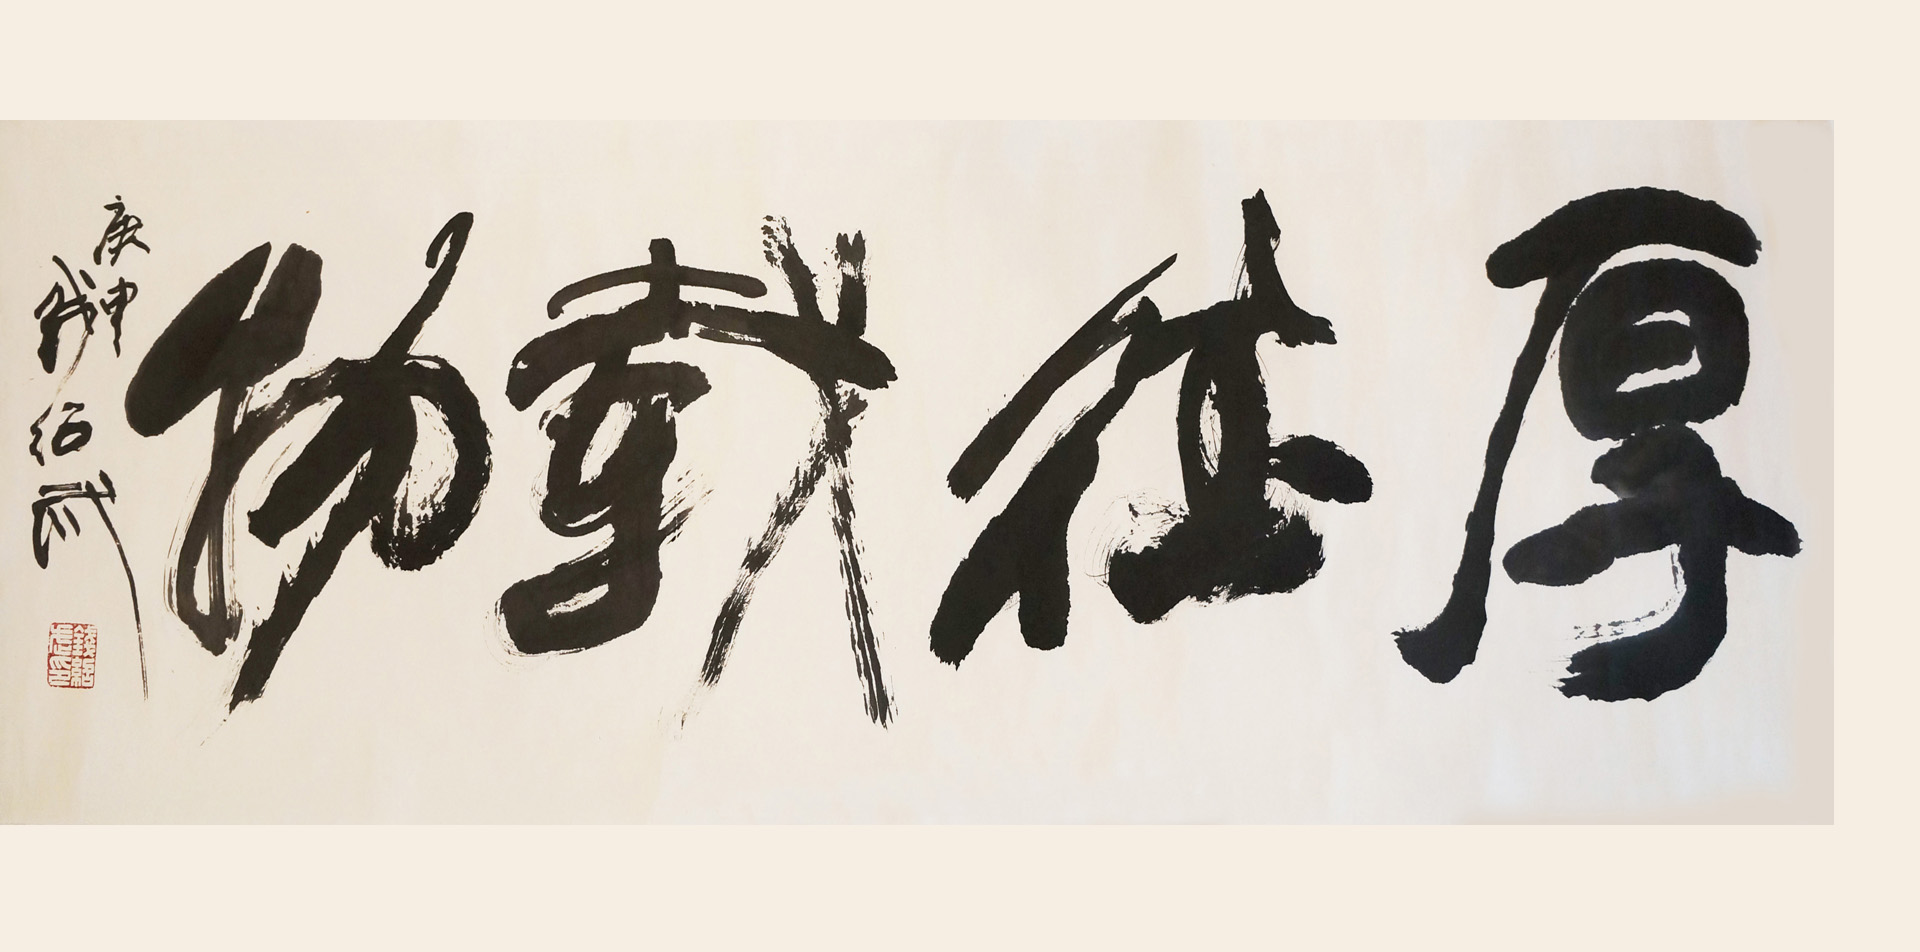 厚德載物
庚申
錢紹武
錢紹武印